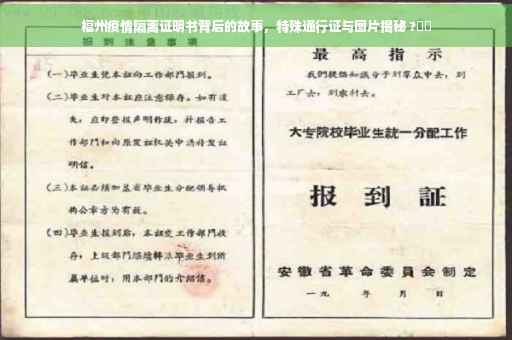 福州疫情隔离证明书背后的故事，特殊通行证与图片揭秘？
报到注意事项
(一)毕业生凭本证向工作部门报到。
(二)毕业生对本证应注意保存。如有遗
失，应即登报声明作废，并报告工
作部门和向原发证机关申请补发证
明信。
(三)本证必须加盖省毕业生分配领导机
构公章方为有效。
(四)毕业生报到后，本证交工作部门收
存；上级部门继续转派毕业生到所
属单位时，用本部门的介绍信。
最高指示
我们提倡知识分子到群众中去，到
工厂去，到农村去。
大专院校毕业生统一分配工作
报到证
安徽省革命委员会制定
一九 年 月 日